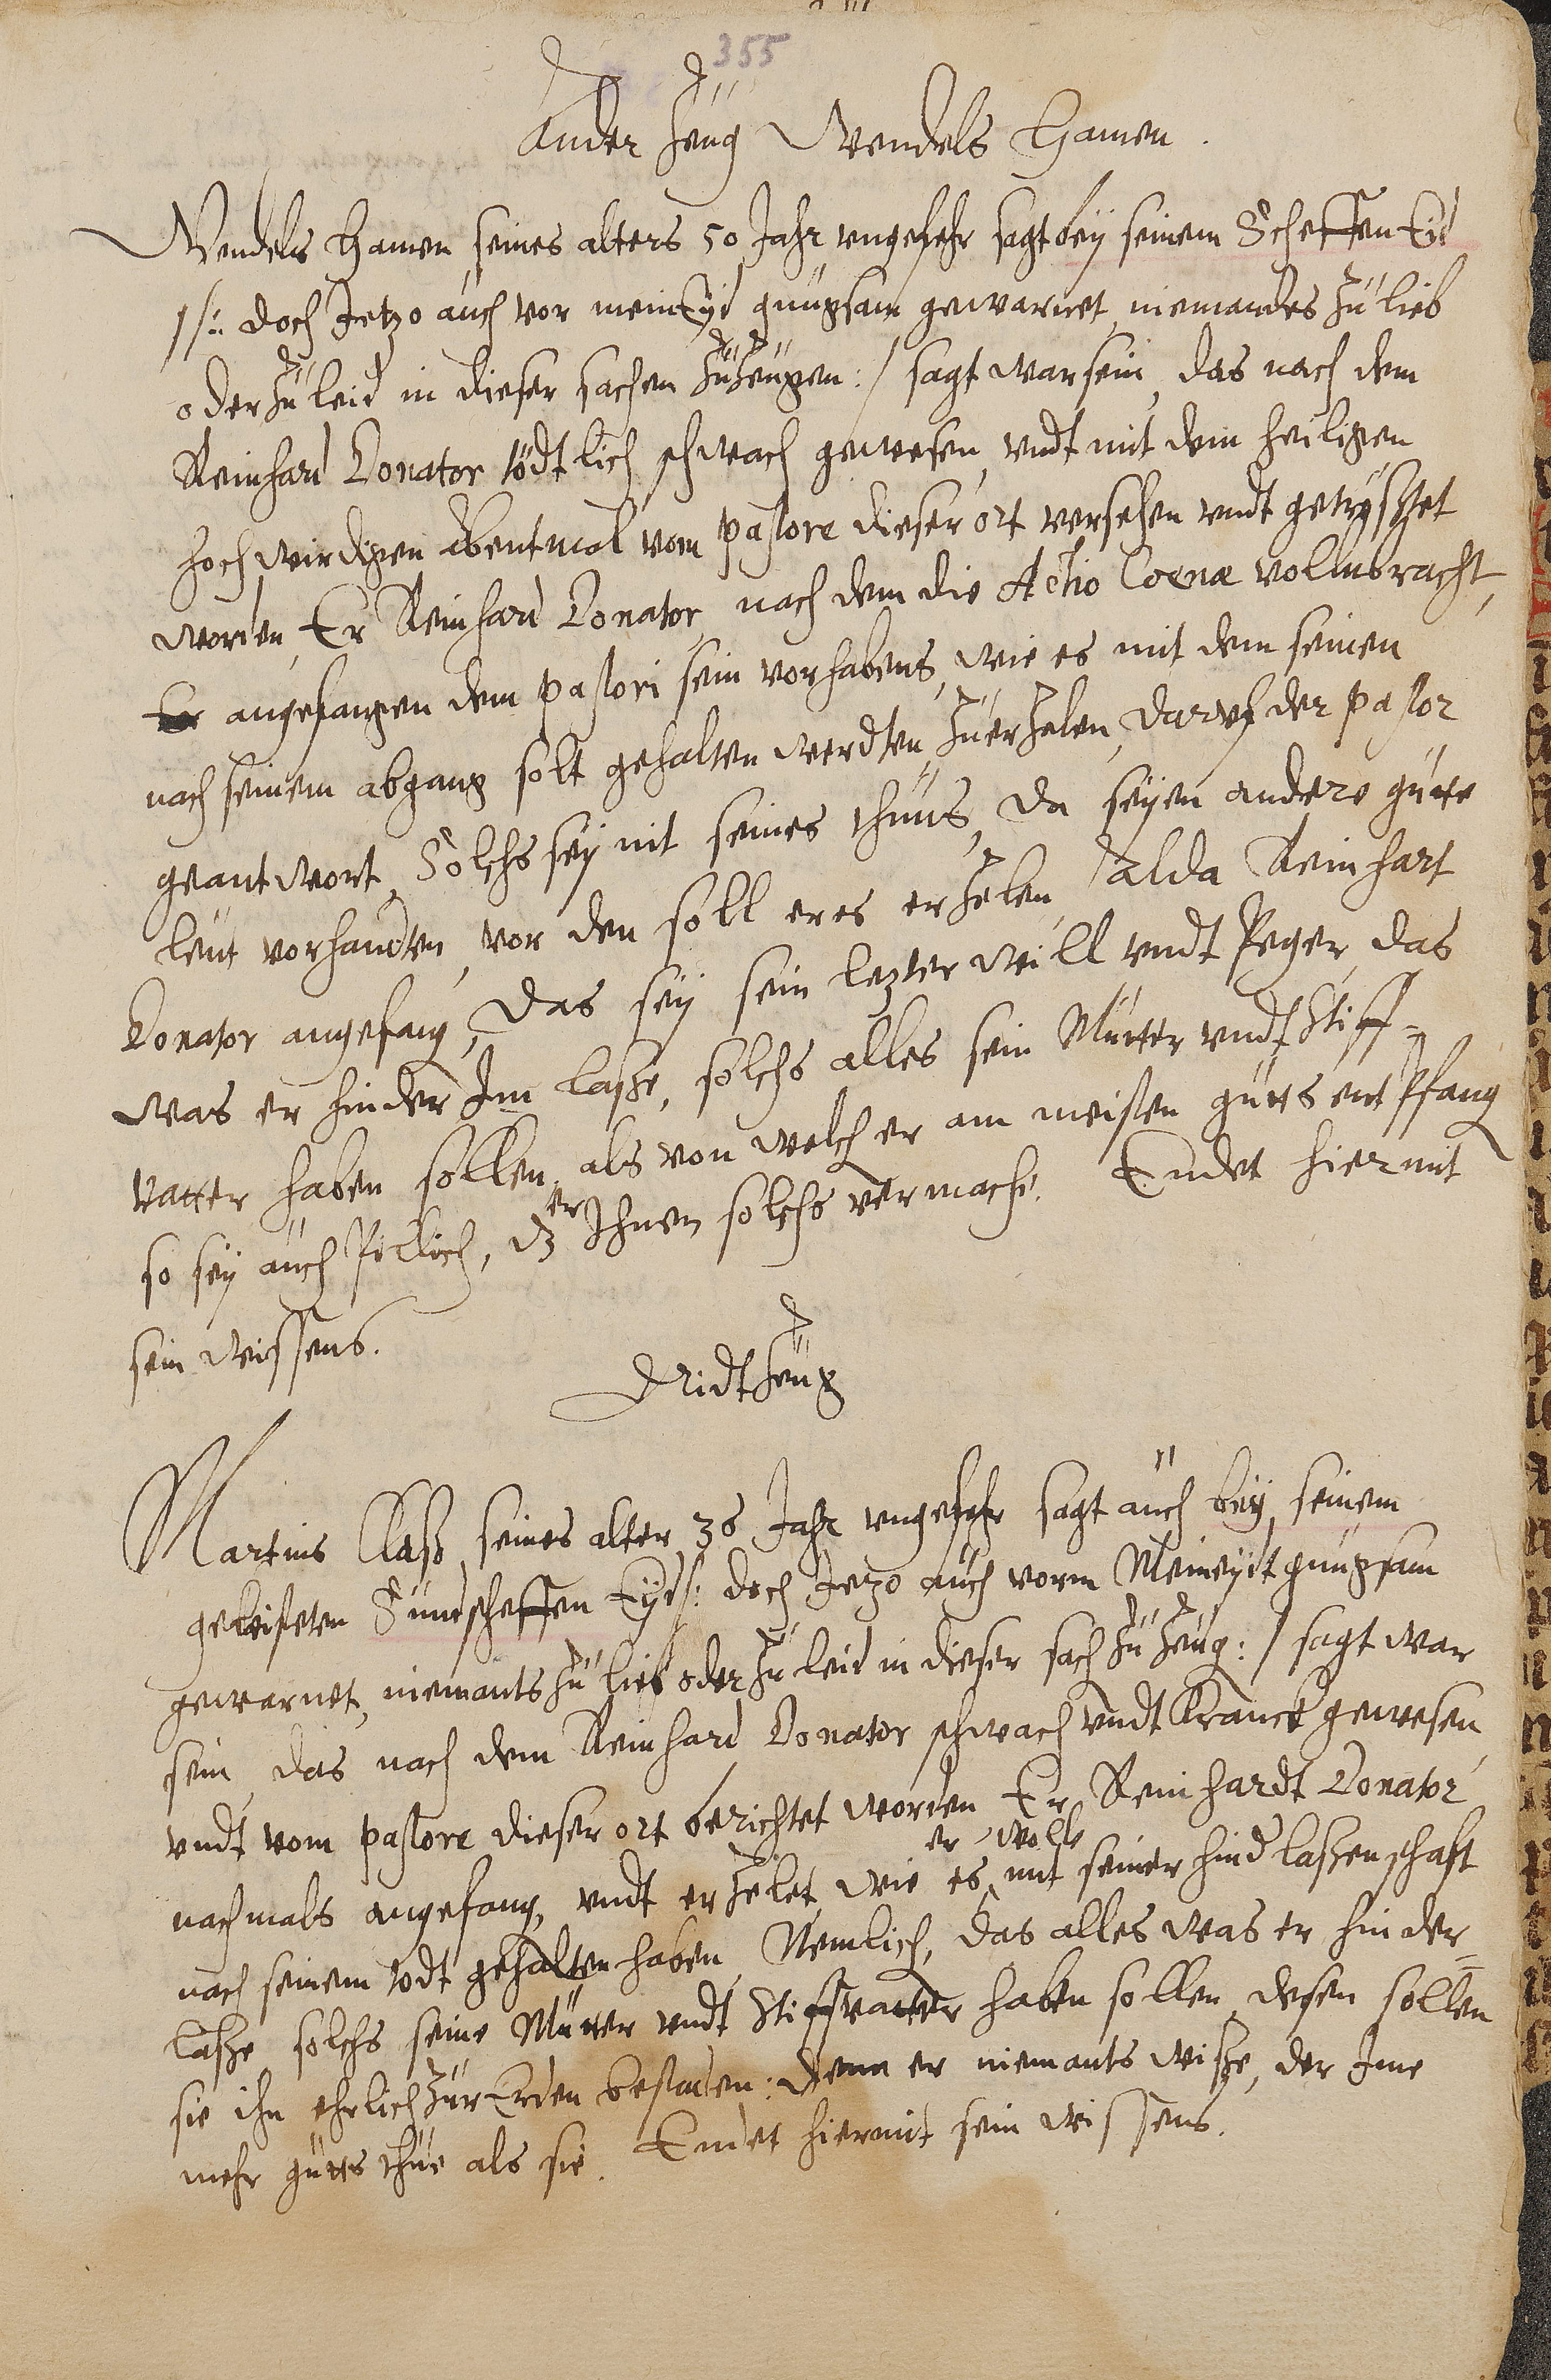 355
Ander Zeüg Wendels Hamen.
Wendels Hamen seines alters 50 Jahr vngefehr sagt beÿ seinem Scheffen Eid
/: doch Jetzo aüch vor mein Eyd gnügsam gewarnet, niemandes zü lieb
oder zü leid in dieser sachen züzeügen :/ sagt war sein, das nach dem
Reinhard Donator tödtlich schwach gewesen, vndt mit dem heiligen
hochwirdigen abentmal vom pastore dieser ort versehen vndt getrÿstet
worden, Er Reinhard Donator, nach dem die Actio Coenæ vollnbracht,
angefangen dem pastori sein vorhabens, wie es mit dem seinen
nach seinem abgang solt gehalten werdten, züerzelen, darvf der pastor
geantwort, Solchs seÿ nit seines thüns, da seÿen andere gütte
leüt vorhandten, vor den soll er es erzelen, Alda Reinhart
Donator angefang, Das seÿ sein letzter will vndt beger, das
was er hinder Im laße, solchs alles sein Mütter vndt Stiff-
vatter haben sollen, als von welch er am meisten gütts entpfang
so seÿ aüch billich, dz er Ihnen solchs vermache. Endet hiermit
sein wissens.
Dridt Zeüg
Martins Claß seines alter 36 Jahr vngefehr sagt aüch beÿ seinem
geleisteten Sünscheffen Eyd /: doch Jetzo aüch vorm Meineydt gnügsam
gewarnet, niemants zü lieb oder zü leid in dieser sach zü zeüg :/ sagt war
sein, das nach dem Reinhard Donator schwach vndt kranck gewesen,
vndt vom pastore dieser ort berichtet worden Er Reinhardt Donator
nachmals angefang, vndt erzelet, wie es er wolle mit seiner hind laßenschaft
nach seinem todt gehalten haben, Nemlich, das alles was er hinder-
laße solchs seine Mütter vndt Stiffvatter haben sollen, desen sollen
sie ihn ehrlich zür Erden bestaden: denn er niemants wiße, der Ime
mehr gütts thüe als sie. Endet hiermit sein wissens.